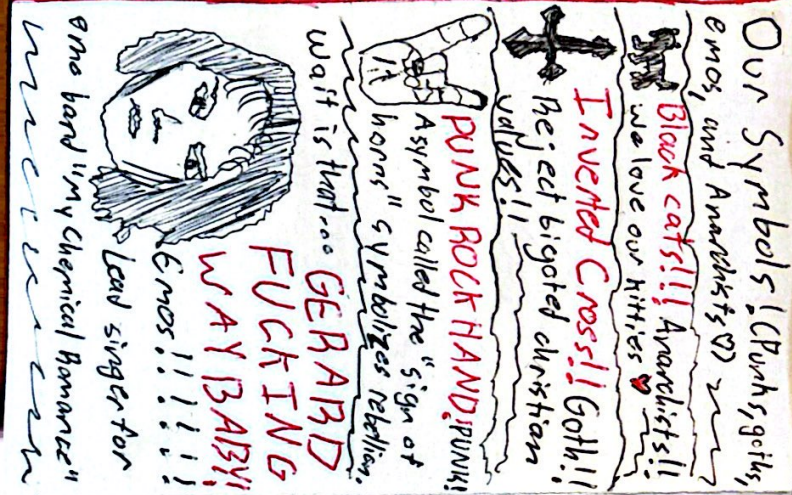 Our Symbols! (Punks, goths,
emos, and Anarchists♡)
Black cats!!! Anarchists!!
We love our kitties ♥
Inverted Cross!! Goth!!
Reject bigoted christian
values!!
PUNK ROCK HAND! PUNK!
A symbol called the "sign of
horns" symbolizes rebellion.
wait is that...
GERARD
FUCKING
WAY BABY!
Emos!!!!!!
Lead singer for
emo band "My Chemical Romance"